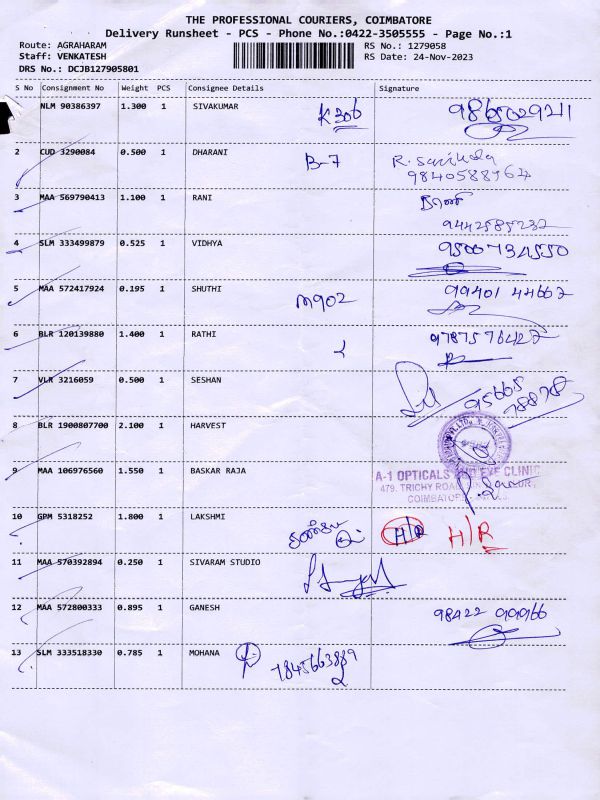 THE PROFESSIONAL COURIERS, COIMBATORE
Delivery Runsheet - PCS - Phone No.:0422-3505555 - Page No.:1
Route: AGRAHARAM RS No.: 1279058
Staff: VENKATESH RS Date: 24-Nov-2023
DRS No.: DCJB127905801
S No Consignment No Weight PCS Consignee Details Signature
NLM 90386397 1.300 1 SIVAKUMAR K306
2 CUD 3290084 0.500 1 DHARANI B-7
3 MAA 569790413 1.100 1 RANI
9442585232
4 SLM 333499879 0.525 1 VIDHYA 9500734550
5 MAA 572417924 0.195 1 SHUTHI M902 99401 44662
6 BLR 120139880 1.400 1 RATHI 9787576422
7 VLR 3216059 0.500 1 SESHAN 95665
78878
8 BLR 1900807700 2.100 1 HARVEST
9 MAA 106976560 1.550 1 BASKAR RAJA A-1 OPTICALS AND EYE CLINIC
479, TRICHY ROAD
COIMBATORE
10 GPM 5318252 1.800 1 LAKSHMI H/R H/R
11 MAA 570392894 0.250 1 SIVARAM STUDIO
12 MAA 572800333 0.895 1 GANESH 98422
13 SLM 333518330 0.785 1 MOHANA 7845663889